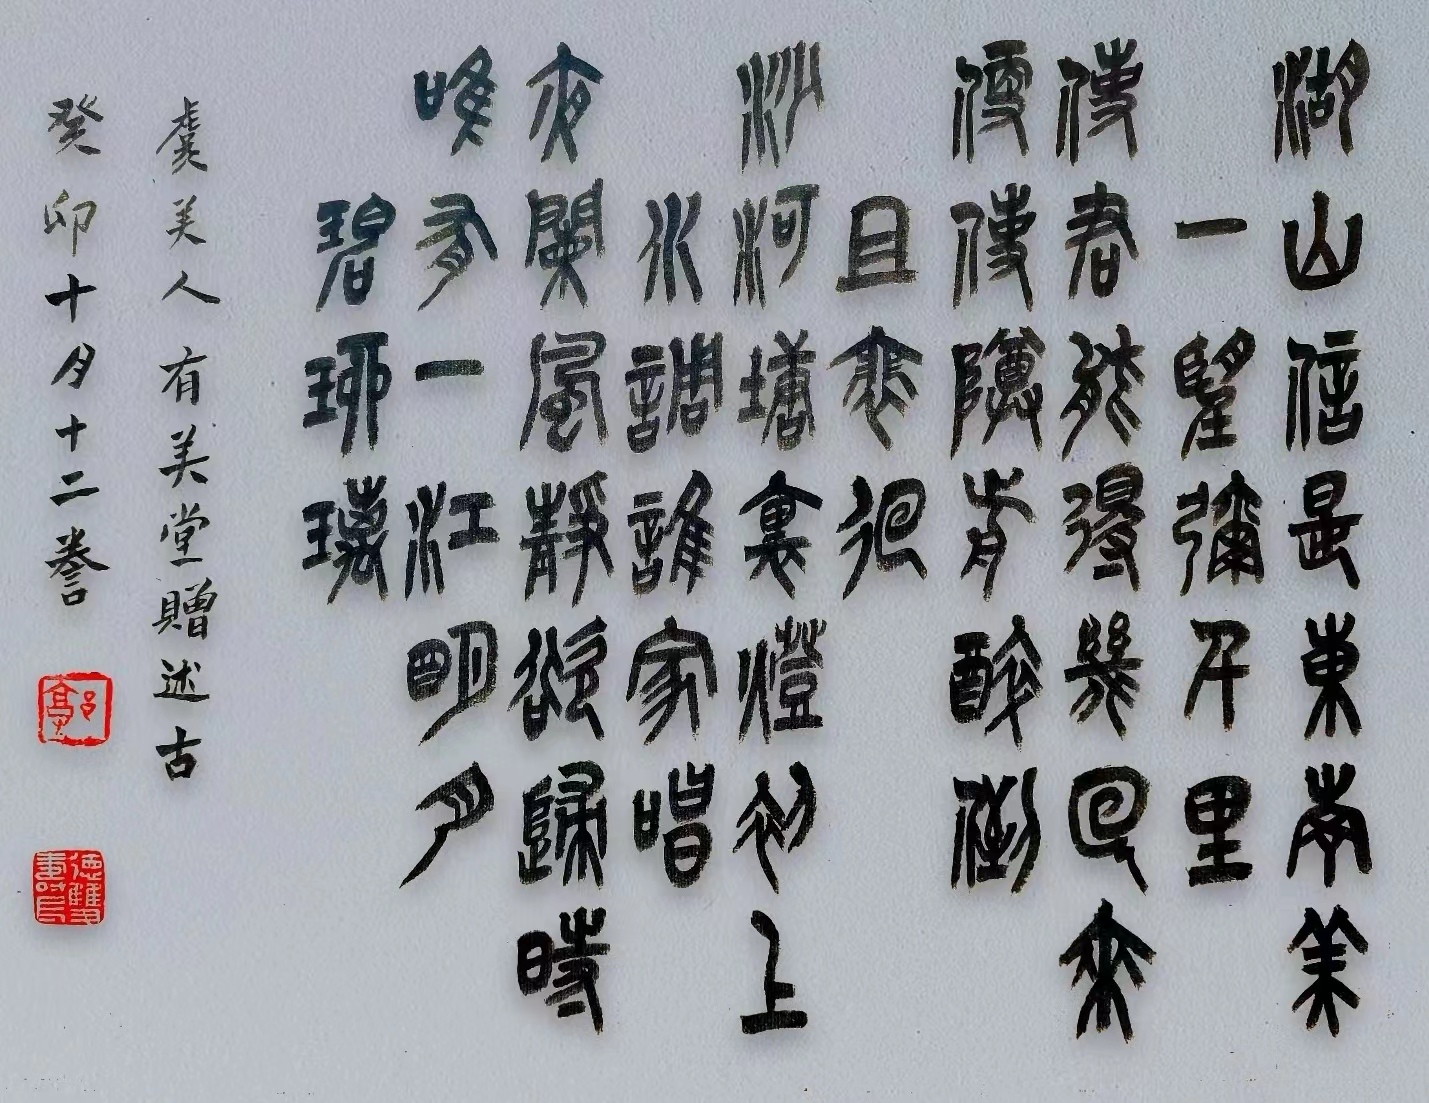 湖山信是東南美
一望彌千里
使君能得幾回來
便使樽前醉倒
且裴徊
沙河塘裏燈初上
水調誰家唱
夜闌風靜欲歸時
唯有一江明月
碧琉璃
虞美人 有美堂贈述古
癸卯十月十二誊
郭